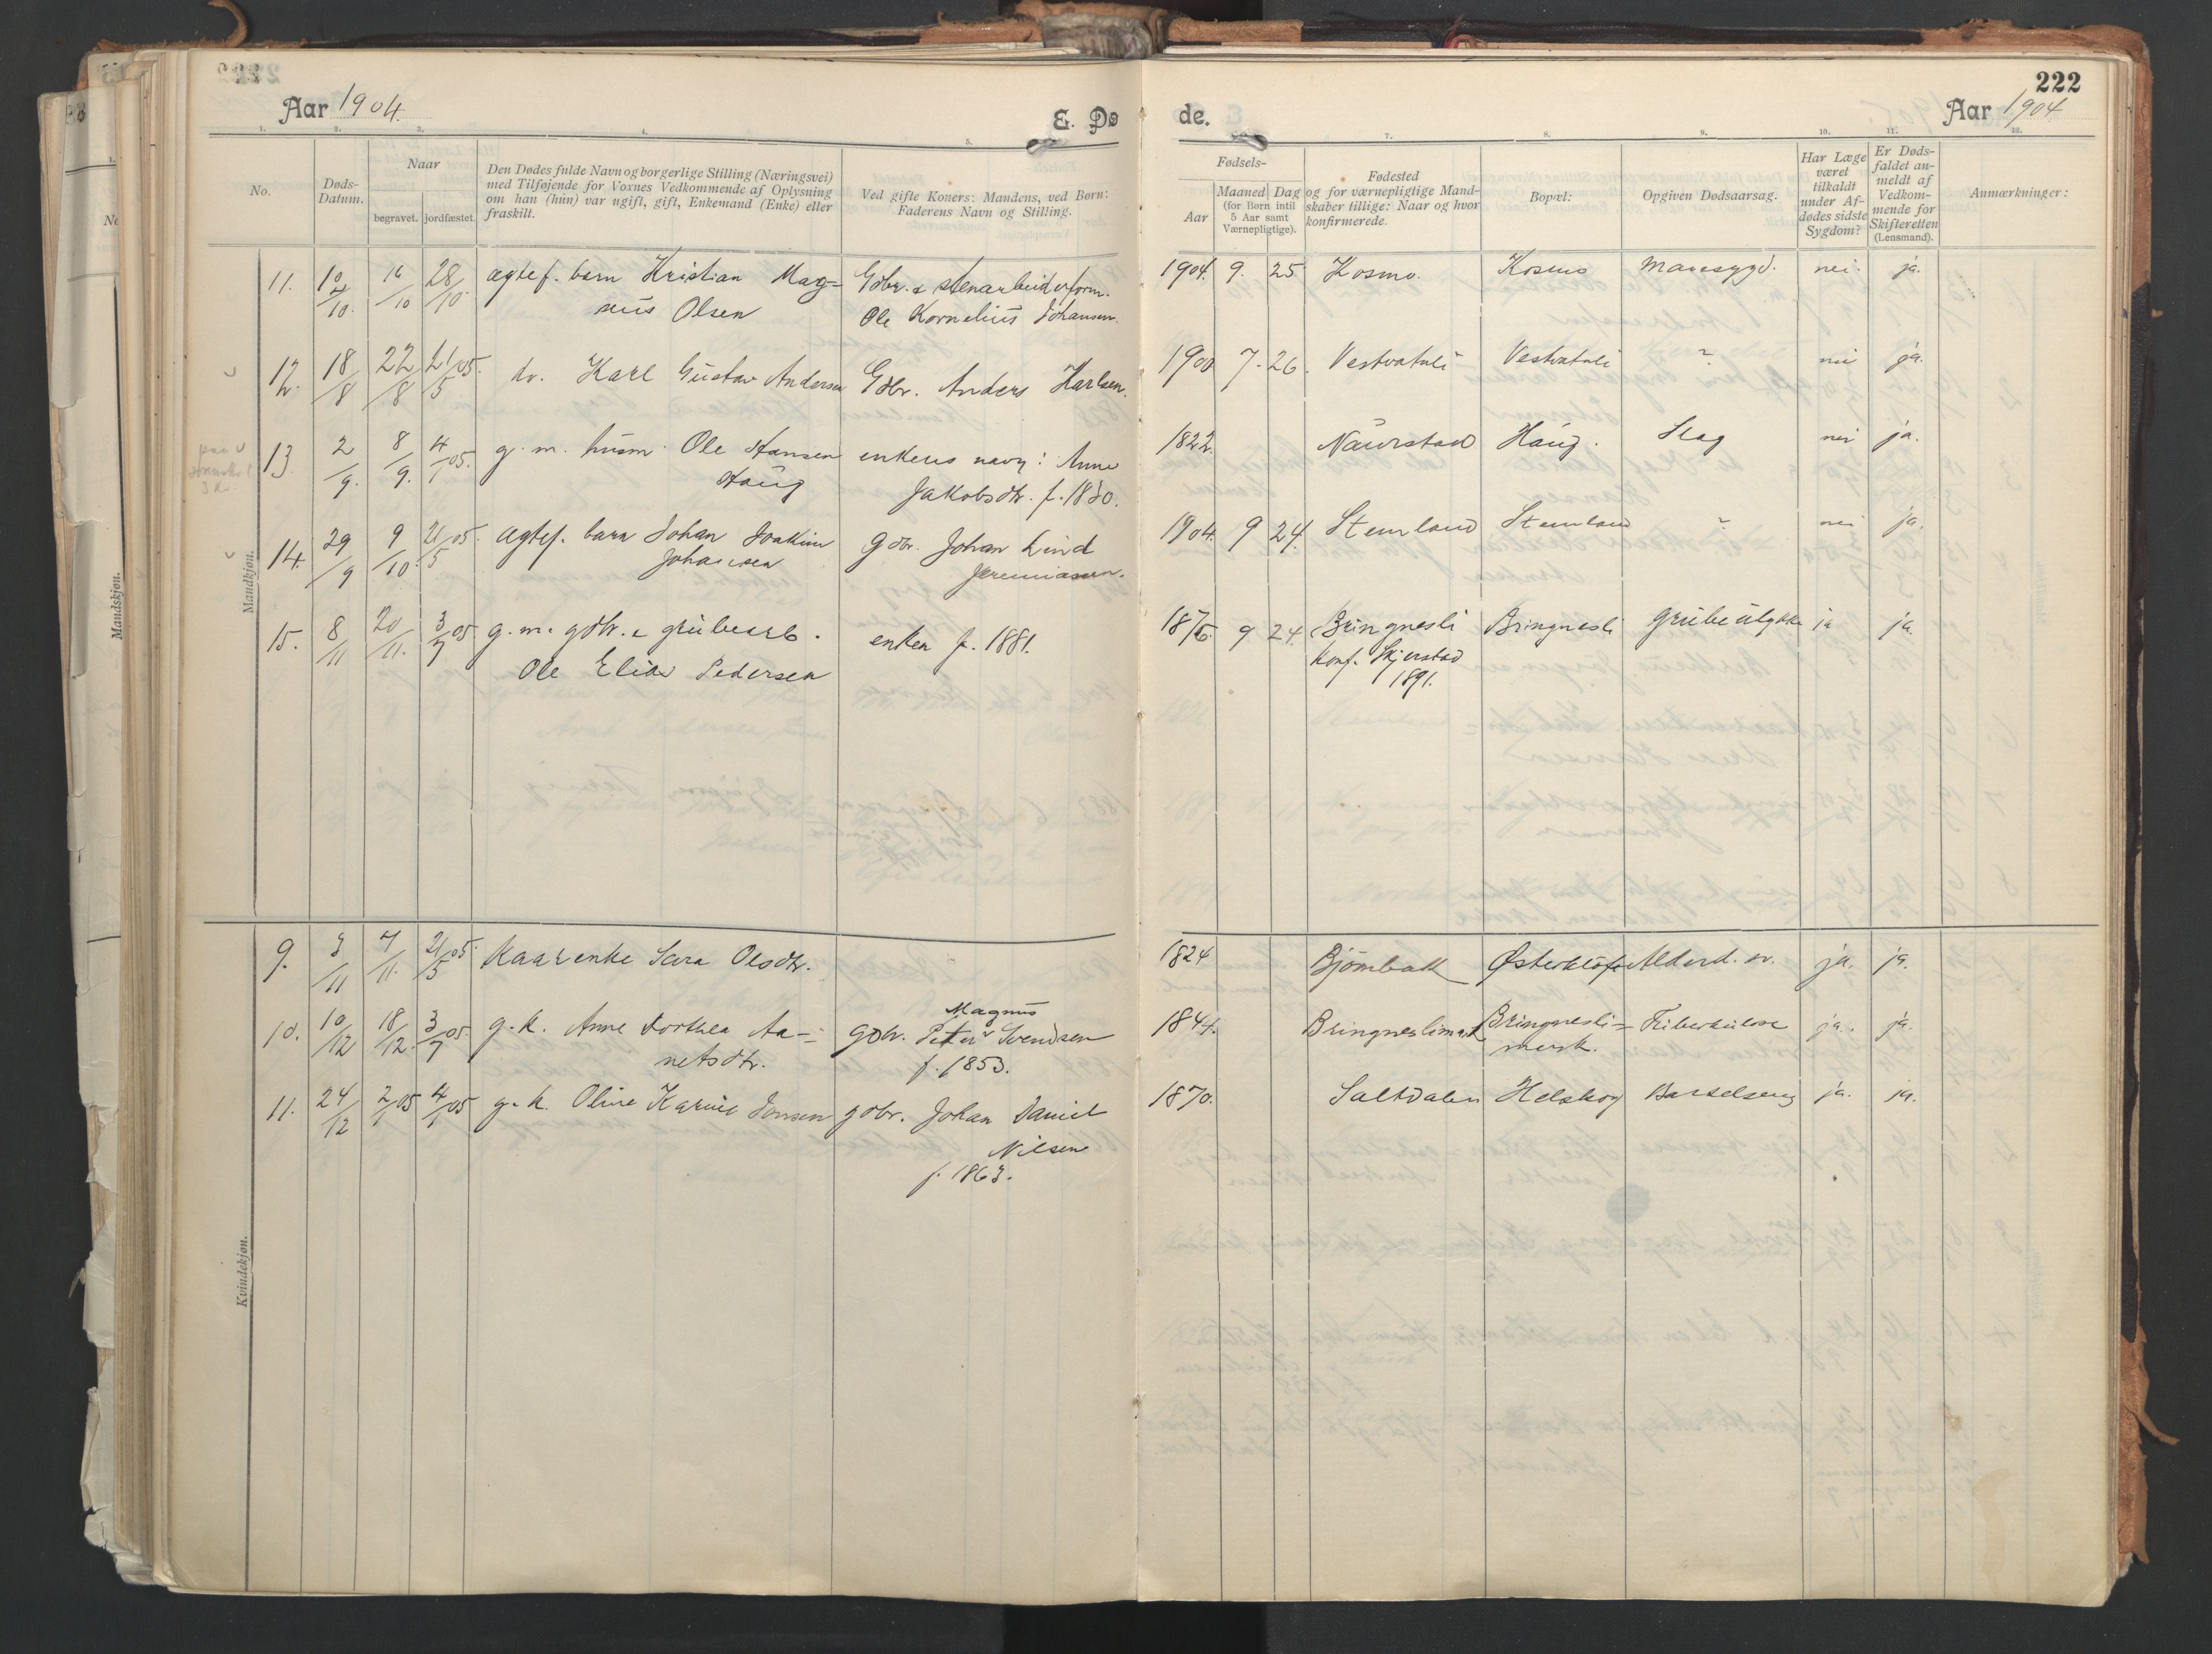 222
Aar 1904.
E. Døde.
Aar 1904
1. 2. 3. 4. 5. 7. 8. 9. 10. 11. 12.
No.
Døds-
Datum.
Naar
begravet. jordfæstet.
Den Dødes fulde Navn og borgerlige Stilling (Næringsvei)
med Tilføjende for Voxnes Vedkommende af Oplysning
om han (hun) var ugift, gift, Enkemand (Enke) eller
fraskilt.
Ved gifte Koners: Mandens, ved Børn:
Faderens Navn og Stilling.
Fødsels-
Aar
Maaned Dag
(for Børn intil
5 Aar samt
Værnepligtige).
Fødested
og for værnepligtige Mand-
skaber tillige: Naar og hvor
konfirmerede.
Bopæl:
Opgiven Dødsaarsag.
Har Læge
været
tilkaldt
under Af-
dødes sidste
Sygdom?
Er Døds-
faldet an-
meldt af
Vedkom-
mende for
Skifteretten
(Lensmand).
Anmærkninger:
Mandkjøn.
11. 16/10 28/10 ægtef. barn Kristian Mag= Gdbr. & stenarbeiderform. 1904 9. 25 Kosmo. Kosmo Mavesygd. nei. ja.
nus Olsen Ole Kornelius Johansen.
12. 18/8 22/8 21/5 05. do. Karl Gustav Andersen Gdbr. Anders Karlsen. 1900 7. 26. Vestvatnli Vestvatnli ? nei ja.
13. 2/9. 8/9. 4/1 05. g. m. husm. Ole Hansen enkens navn: Anne 1822. Naurstad Haug. Slag nei ja.
Haug Jakobsdtr. f. 1830.
14. 29/9 9/10. 21/5 05. Ægtef. barn Johan Joakim Gdbr. Johan Lind 1904. 9 24. Stemland Stemland ? nei ja.
Johansen Jeremiassen.
15. 8/11 20/11. 3/7 05 g. m. gdbr. & grubearb. enken f. 1881. 1876. 9 24. Bringnesli Bringnesli Grubeulykke ja ja.
Ole Elias Pedersen konf. Skjerstad
1891.
Kvindekjøn.
9. 3/11 7/11. 21/5 05. Kaarenke Sara Olsdtr. 1824 Bjørnbakk Østerkløft Alderd. sv. ja. ja.
10. 10/12 18/12. 3/7 05. g. k. Anne Dorthea Aa- Magnus 1844. Bringneslimark Bringnesli= Tuberkulose ja. ja.
netsdtr. gdbr. Peter Svendsen mark.
f. 1853.
11. 24/12 2/1 05 4/1 05 g. k. Oline Karine Jonsen gdbr. Johan Daniel 1870. Saltdalen Helskog Barselseng ja. ja.
Nilsen
f. 1863.
Mandskjøn.